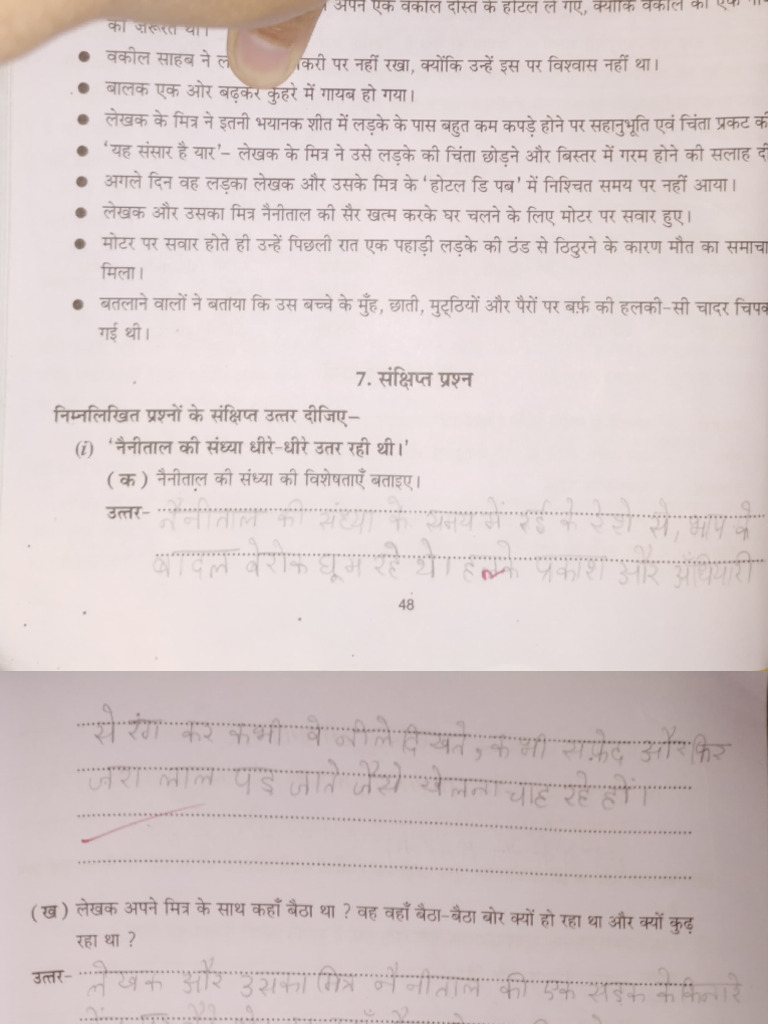 अपने एक वकील दोस्त के होटल ले गए, क्योंकि वकील को एक
की ज़रूरत थी।
● वकील साहब ने पर नहीं रखा, क्योंकि उन्हें इस पर विश्वास नहीं था।
● बालक एक ओर बढ़कर कुहरे में गायब हो गया।
● लेखक के मित्र ने इतनी भयानक शीत में लड़के के पास बहुत कम कपड़े होने पर सहानुभूति एवं चिंता प्रकट की
● 'यह संसार है यार'– लेखक के मित्र ने उसे लड़के की चिंता छोड़ने और बिस्तर में गरम होने की सलाह दी
● अगले दिन वह लड़का लेखक और उसके मित्र के 'होटल डि पब' में निश्चित समय पर नहीं आया।
● लेखक और उसका मित्र नैनीताल की सैर खत्म करके घर चलने के लिए मोटर पर सवार हुए।
● मोटर पर सवार होते ही उन्हें पिछली रात एक पहाड़ी लड़के की ठंड से ठिठुरने के कारण मौत का समाचा
मिला।
● बतलाने वालों ने बताया कि उस बच्चे के मुँह, छाती, मुट्ठियों और पैरों पर बर्फ़ की हलकी-सी चादर चिपक
गई थी।
7. संक्षिप्त प्रश्न
निम्नलिखित प्रश्नों के संक्षिप्त उत्तर दीजिए–
(i) 'नैनीताल की संध्या धीरे-धीरे उतर रही थी।'
(क) नैनीताल की संध्या की विशेषताएँ बताइए।
उत्तर- नैनीताल की संध्या के समय में रुई के रेशे से, भाप के
बादल बेरोक घूम रहे थे। हलके प्रकाश और अँधियारी
48
से रंग कर कभी वे नीले दिखते, कभी सफ़ेद और फिर
जरा लाल पड़ जाते जैसे खेलना चाह रहे हों।
(ख) लेखक अपने मित्र के साथ कहाँ बैठा था ? वह वहाँ बैठा-बैठा बोर क्यों हो रहा था और क्यों कुढ़
रहा था ?
उत्तर- लेखक और उसका मित्र नैनीताल की एक सड़क के किनारे